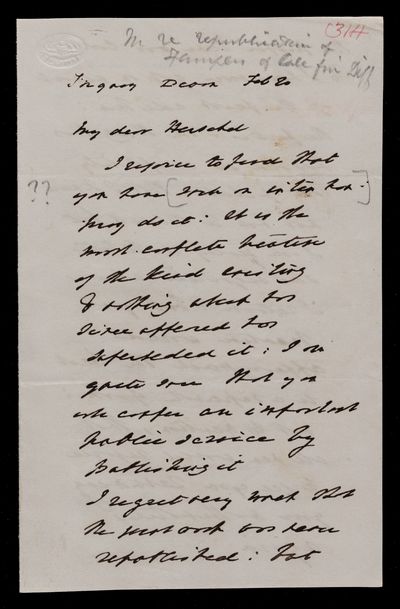 314
In re republication of
Examples of Calc. fin Diff
Torquay Devon Feb 20
My dear Herschel
I rejoice to find that
you have [such an intention:]
??
pray do it: It is the
most complete treatise
of the kind existing
& nothing which has
since appeared has
superseded it: I am
quite sure that you
will confer an important
public service by
publishing it
I regret very much that
the great work was never
republished: but